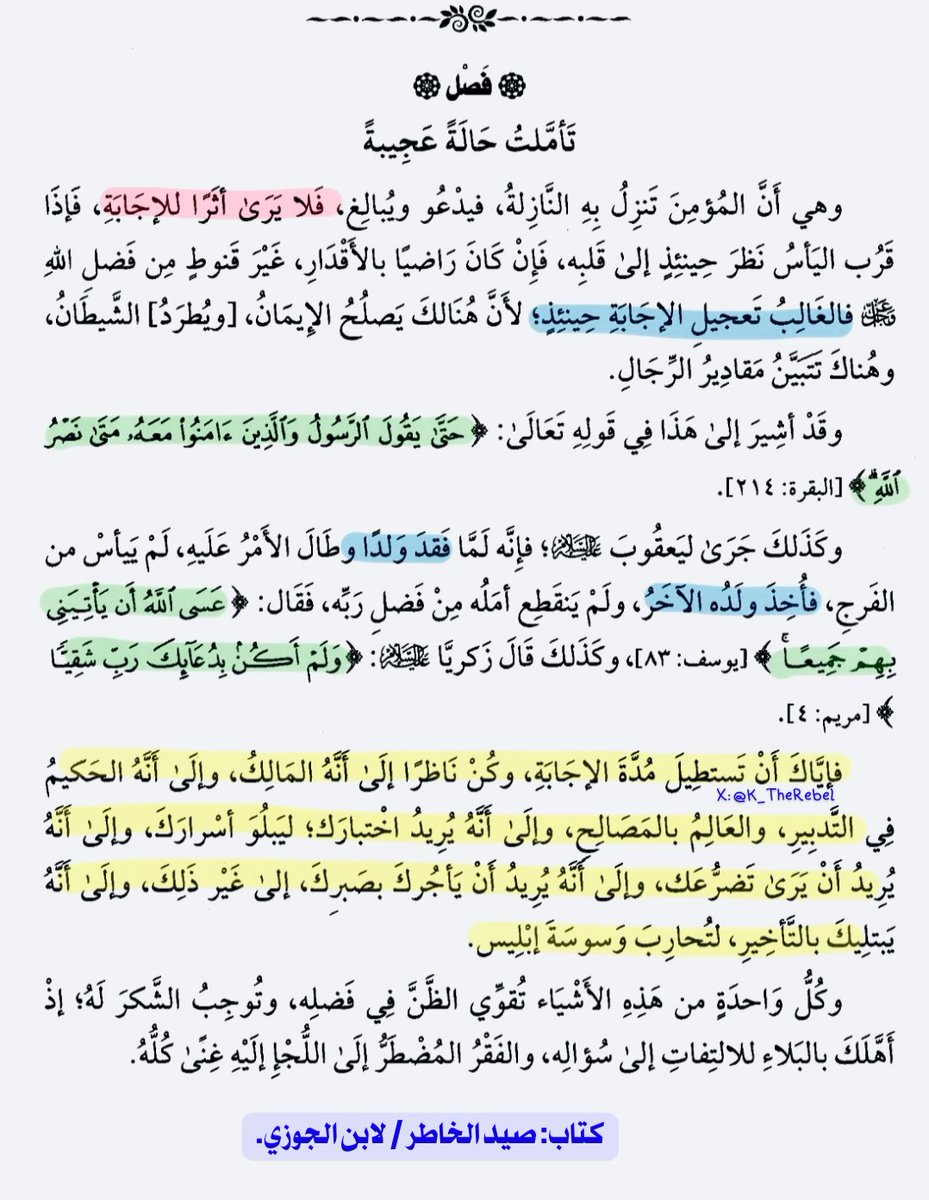 فَصْل
تَأمَّلتُ حَالَةً عَجِيبةً
وهي أَنَّ المُؤمِنَ تَنزِلُ بِهِ النَّازِلةُ، فيدْعُو ويُبالِغ، فَلا يَرَىٰ أثَرًا للإجَابَةِ، فَإذَا
قَرُب اليَأسُ نَظَرَ حِينئِذٍ إلىٰ قَلبِه، فَإِنْ كَانَ رَاضيًا بالأَقْدَارِ، غَيْرَ قَنوطٍ مِن فَضلِ اللهِ
عَزَّوَجَلَّ فالغَالِبُ تَعجيلِ الإجَابَةِ حِينئِذٍ؛ لأَنَّ هُنَالكَ يَصلُحُ الإِيمَانُ، [ويُطرَدُ] الشَّيطَانُ،
وهُناكَ تَتَبَيَّنُ مَقادِيرُ الرِّجَالِ.
وقَدْ أشِيرَ إلىٰ هَذَا فِي قَولِهِ تَعَالَىٰ: ﴿حَتَّىٰ يَقُولَ ٱلرَّسُولُ وَٱلَّذِينَ ءَامَنُواْ مَعَهُۥ مَتَىٰ نَصْرُ
ٱللَّهِۗ﴾ [البقرة: ٢١٤].
وكَذَلكَ جَرَىٰ ليَعقُوبَ عَلَيْهِ السَّلَامُ؛ فإنَّه لَمَّا فَقدَ وَلدًا وطَالَ الأَمْرُ عَلَيهِ، لَمْ يَيأسْ من
الفَرجِ، فأُخِذَ ولَدُه الآخَرُ، ولَمْ يَنقَطِع أمَلُه مِنْ فَضلِ رَبِّه، فَقَال: ﴿عَسَى ٱللَّهُ أَن يَأْتِيَنِي
بِهِمْ جَمِيعًاۚ﴾ [يوسف: ٨٣]، وكَذَلكَ قَالَ زَكريَّا عَلَيْهِ السَّلَامُ: ﴿وَلَمْ أَكُنۢ بِدُعَآئِكَ رَبِّ شَقِيًّا
﴾ [مريم: ٤].
فإيَّاكَ أَنْ تَستطِيلَ مُدَّةَ الإجَابَةِ، وكُنْ نَاظرًا إلَىٰ أنَّهُ المَالِكُ، وإلَىٰ أنَّهُ الحَكيمُ
X:@K_TheRebel
فِي التَّدبِيرِ، والعَالِمُ بالمَصَالحِ، وإلَىٰ أنَّهُ يُرِيدُ اخْتبارَك؛ ليَبلُوَ أسْرارَكَ، وإلَىٰ أنَّهُ
يُرِيدُ أَنْ يَرَىٰ تَضرُّعَك، وإلَىٰ أنَّهُ يُرِيدُ أنْ يَأجُركَ بصَبرِكَ، إلىٰ غَيْر ذَلِكَ، وإلَىٰ أنَّهُ
يَبتلِيكَ بالتَّأخِيرِ، لتُحاربَ وَسوسَةَ إبْلِيس.
وكُلُّ وَاحدَةٍ من هَذِهِ الأَشْيَاء تُقوِّي الظَّنَّ فِي فَضلِه، وتُوجِبُ الشَّكرَ لَهُ؛ إذْ
أَهَّلَكَ بالبَلاءِ للالتِفاتِ إلىٰ سُؤالِه، والفَقْرُ المُضْطَرُّ إلَىٰ اللُّجْإِ إلَيْهِ غِنًىٰ كُلُّهُ.
كتاب: صيد الخاطر / لابن الجوزي.